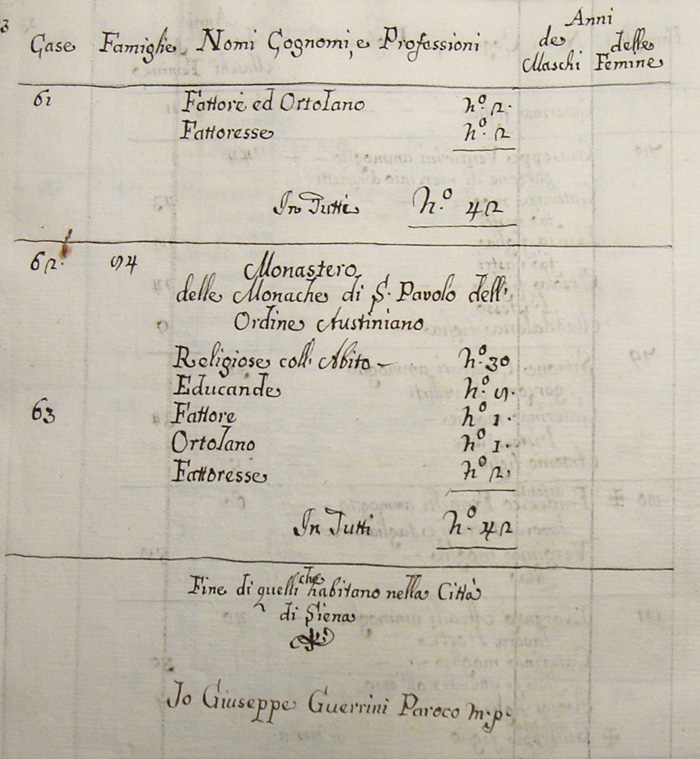 3
Case Famiglie Nomi Cognomi, e Professioni Anni
de Maschi delle Femine
61 Fattore ed Ortolano n.º 2.
Fattoresse n.º 2
In Tutte n.º 42
62. 84 Monastero
delle Monache di S. Pavolo dell'
Ordine Austiniano
Religiose coll' Abito – n.º 30
Educande n.º 8.
63 Fattore n.º 1.
Ortolano n.º 1.
Fattoresse n.º 2.
In Tutti n.º 42
Fine di quelli che habitano nella Città
di Siena
Jo Giuseppe Guerrini Paroco m.p.